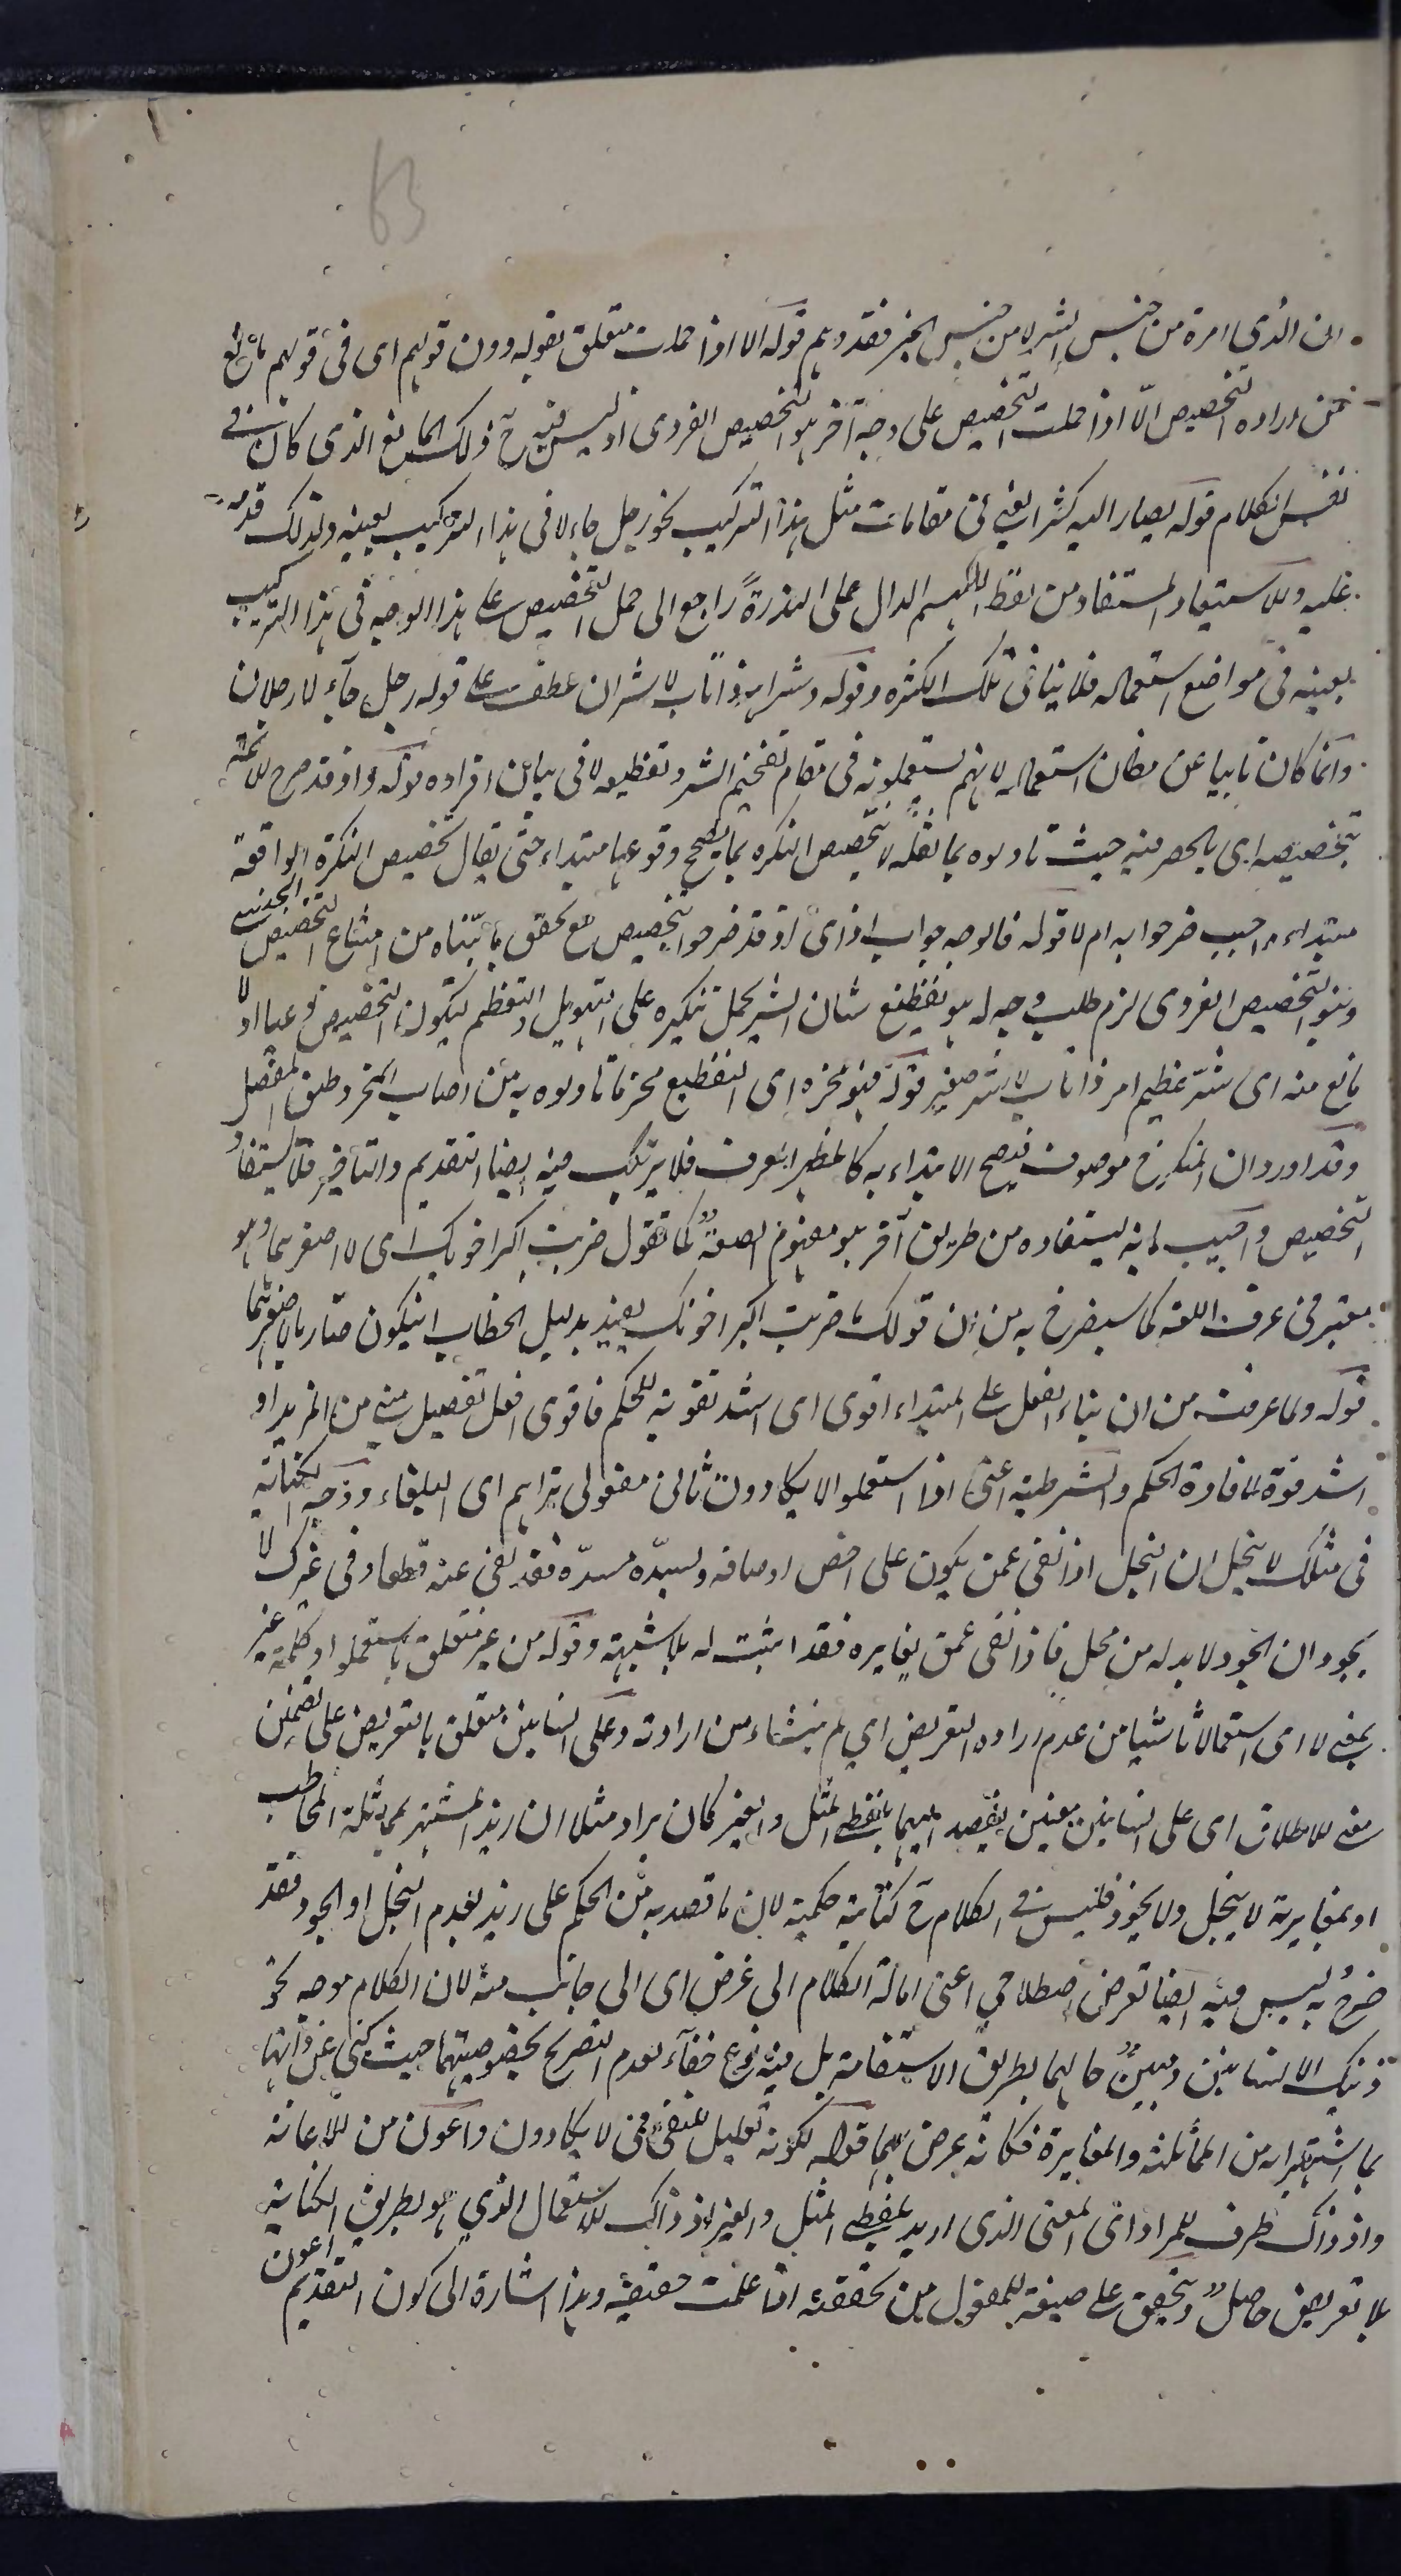 63
ان الذى امره من جنس الشر لا من جنس الخير فقد وهم قوله الا اذا حملت متعلق بقوله دون قولهم اى فى قولهم مانع
من ارادة التخصيص الّا اذا حملت التخصيص على وجه آخر هو التخصيص الفردى اذ ليس فيه ح ذلك المانع الذى كان فى
نفس الكلام قوله يصار اليه كثر ايعنى فى مقامات مثل هذا التركيب نحو رجل جاء لا فى هذا التركيب بعينه ولذلك قدمه
عليه والاستبعاد المستفاد من لفظ اللهم الدال على الندرة راجع الى حمل التخصيص على هذا الوجه فى هذا التركيب
بعينه فى مواضع استعماله فلا ينافى تلك الكثرة وقوله وشر اهر ذا ناب لا شران عطف على قوله رجل جاء لا رجلان
وانما كان نابيا عن مظان استعماله لانهم يستعملونه فى مقام تفخيم الشر وتفظيعه لا فى بيان افراده قوله واذ قد صرح الائمة
بتخصيصه اى بالحصر فيه حيث تاولوه بما نقله لا تخصيص النكرة بما يصحح وقوعها مبتداء حتى يقال تخصيص النكرة الواقعة
مبتداء واجب صرحوا به ام لا قوله فالوجه جواب اذ اى اذ قد صرحوا بتخصيص مع تحقق ما بيّناه من امتناع التخصيص الجنسى
ونبو التخصيص الفردى لزم طلب وجه له هو تفظيع شان الشر بحمل تنكيره على التهويل والتعظيم ليكون التخصيص نوعيا اذ لا
مانع منه اى شر عظيم اهر ذا ناب لا شر صغير قوله فهو محزه اى التفظيع محز ما تاولوه به من اصاب المحز وطبق المفصل
وقد اورد ان المنكر ح موصوف فيصح الابتداء به كالمظهر المعرف فلا يرتكب فيه ايضا التقديم والتأخير فلا يستفاد
التخصيص واجيب بانه يستفاد من طريق آخر هو مفهوم الصفة كما تقول ضربت اكبر اخويك اى لا اصغرهما وهو
معتبر فى عرف اللغة كما سيصرح به من ان قولك ما ضربت اكبر اخويك يفيد بدليل الخطاب ان يكون ضاربا لاصغرهما
قوله ولما عرفت من ان بناء الفعل على المبتداء اقوى اى اشد تقوية للحكم فاقوى افعل تفضيل مبنى من المزيد او
اشد قوة لافادة الحكم والشرطية اعنى اذا استعملوا لا يكادون ثانى مفعولى تراهم اى البلغاء ووجه الكناية
فى مثلك لا يبخل ان البخل اذا نفى عمن يكون على اخص اوصافه ويسد مسدّه فقد نفى عنه قطعا وفى غيرك لا
يجود ان الجود لا بد له من محل فاذا نفى عمن يغايره فقد اثبت له بلا شبهة وقوله من غير متعلق باستعملوا وكلمة غير
بمعنى لا اى استعمالا ناشيا من عدم ارادة التعريض اى لم ينشاء من ارادته وعلى انسانين متعلق بالتعريض على تضمين
معنى الاطلاق اى على انسانين معينين يقصد اليهما بلفظى المثل والغير كان يراد مثلا ان زيد المشتهر بمماثلة المخاطب
او بمغايرته لا يبخل ولا يجود فليس فى الكلام ح كناية حكمية لان ما قصد به من الحكم على زيد بعدم البخل او الجود فقد
صرح به ليس فيه ايضا تعرض اصطلاحي اعنى امالة الكلام الى عرض اى الى جانب منه لان الكلام موجه نحو
ذينك الانسانين ومبين حالهما بطريق الاستقامة بل فيه نوع خفآء لعدم التصريح بخصوصيتهما حيث كنى عن ذاتهما
بما اشتهرا به من المماثلة والمغايرة فكانه عرض بهما قوله لكونه تعليل للنفى فى لا يكادون واعون من الاعانة
واذ ذاك ظرف للمراد اى المعنى الذى اريد بلفظى المثل والغير اذ ذاك الاستعمال الذي هو بطريق الكناية
بلا تعريض حاصل وتحقق على صيغة المفعول من تحققته اذا علمت حقيقة وهذا اشارة الى كون التقديم اعون